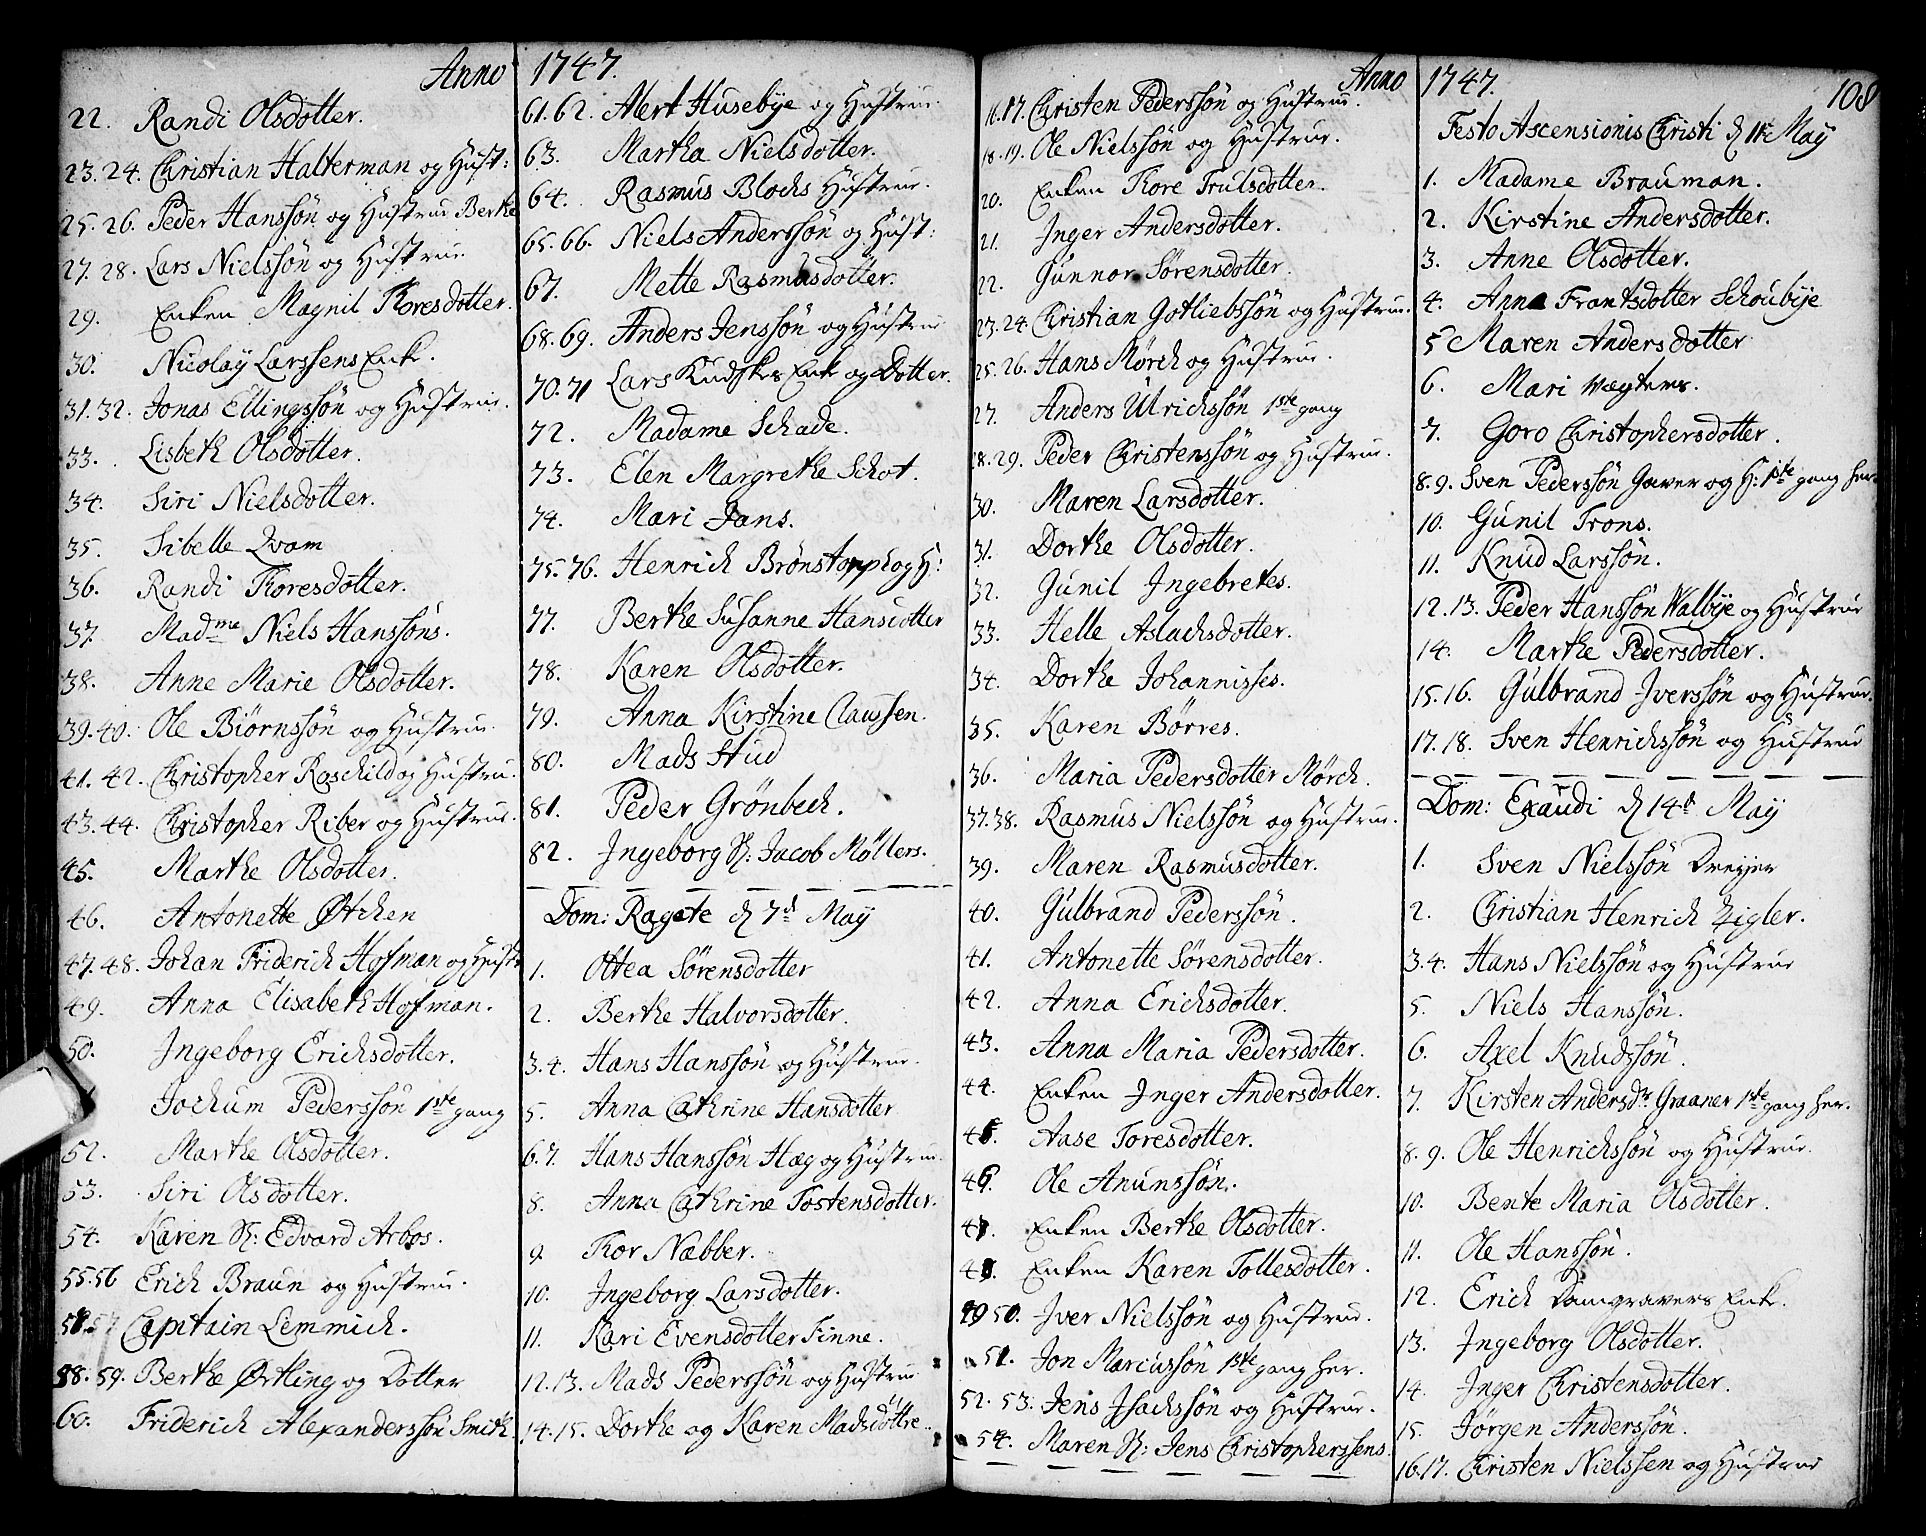 Anno
22. Randi Olsdotter.
23. 24. Christian Halterman og Hust:
25. 26. Peder Hanssøn og Hustrue Berthe
27. 28. Lars Nielssøn og Hustrue
29. Enken Magnil Thoresdotter.
30. Nicolaÿ Larssens Enke.
31. 32. Jonas Ellingssøn og Hustrue.
33. Lisbeth Olsdotter.
34. Siri Nielsdotter.
35. Sibelle Qvam
36. Randi Thoresdotter.
37. Madme Niels Hanssøns.
38. Anne Marie Olsdotter.
39. 40. Ole Biørnssøn og Hustrue.
41. 42. Christopher Roschild og Hustru.
43. 44. Christopher Riber og Hustrue.
45. Marthe Olsdotter.
46. Antonette Øtken
47. 48. Johan Friderich Hofman og Hustr
49. Anna Elisabeth Hofman.
50. Ingeborg Erichsdotter.
Jochum Pederssøn 1ste gang
52. Marthe Olsdotter.
53. Siri Olsdotter.
54. Karen S: Edvard Arbos.
55. 56 Erich Braun og Hustrue.
57 Capitain Lemmich.
58. 59. Berthe Ørtling og Dotter
60. Friderich Alexanderssøn Smith.
1747.
61. 62. Alert Husebÿe og Hustrue.
63. Martha Nielsdotter.
64. Rasmus Blochs Hustrue.
65. 66. Niels Anderssøn og Hust:
67. Mette Rasmusdotter.
68. 69. Anders Jenssøn og Hustrue
70. 71 Lars Kudskes Enke og Dotter.
72. Madame Schade.
73. Elen Margrethe Schot.
74. Mari Jans.
75. 76. Henrich Brønstorph og H:
77. Berthe Susanne Hansdotter
78. Karen Olsdotter.
79. Anna Kirstine Claussen.
80. Mads Stud
81. Peder Grønbech.
82. Ingeborg S: Jacob Møllers.
Dom: Rogate d 7d May
1. Ottea Sørensdotter
2. Berthe Halvorsdotter.
3. 4. Hans Hanssøn og Hustrue.
5. Anna Cathrine Hansdotter
6. 7. Hans Hanssøn Hæg og Hustrue.
8. Anna Cathrine Tostensdotter.
9. Thor Næbber.
10. Ingeborg Larsdotter.
11. Kari Evensdotter Finne.
12. 13. Mads Pederssøn og Hustrue
14. 15. Dorthe og Karen Madsdøttre.
Anno
16. 17. Christen Pederssøn og Hustrue.
18. 19. Ole Nielssøn og Hustrue.
20. Enken Thore Trulsdotter.
21. Inger Andersdotter.
22. Gunnor Sørensdotter.
23. 24. Christian Gotliebssøn og Hustrue.
25. 26. Hans Mørch og Hustrue.
27. Anders Ulrichssøn 1ste gang
28. 29. Peder Christenssøn og Hustrue.
30. Maren Larsdotter.
31. Dorthe Olsdotter.
32. Gunil Ingebretes.
33. Helle Aslachsdotter.
34. Dorthe Johannisses.
35. Karen Børres.
36. Maria Pedersdotter Mørch.
37. 38. Rasmus Nielssøn og Hustrue.
39. Maren Rasmusdotter.
40. Gulbrand Pederssøn.
41. Antonette Sørensdotter.
42. Anna Erichsdotter.
43. Anna Maria Pedersdotter.
44. Enken Inger Andersdotter.
45. Aase Toresdotter.
46. Ole Anunssøn.
47. Enken Berthe Olsdotter.
48. Enken Karen Tollesdotter.
49 50. Iver Nielssøn og Hustrue.
51. Jon Marcussøn 1ste gang her.
52. 53. Jens Isachssøn og Hustrue.
54. Maren S: Jens Christopherssens.
1747.
108
Festo Ascensionis Christi d 11te May
1. Madame Brauman.
2. Kirstine Andersdotter.
3. Anne Olsdotter.
4. Anna Frantsdotter Schoubÿe
5 Maren Andersdotter
6. Mari Vægters.
7. Goro Christophersdotter.
8. 9. Sven Pederssøn Garver og H: 1ste gang her.
10. Gunil Trons.
11. Knud Larssøn.
12. 13. Peder Hanssøn Walbÿe og Hustrue
14. Marthe Pedersdotter.
15. 16. Gulbrand Iverssøn og Hustrue.
17. 18. Sven Henrichssøn og Hustrue
Dom: Exaudi d 14d May
1. Sven Nielssøn Dreyer
2. Christian Henrich Zigler.
3. 4. Hans Nielssøn og Hustrue
5. Niels Hanssøn.
6. Axel Knudssøn.
7. Kirsten Andersdr Graaner 1ste gang her.
8. 9. Ole Henrichssøn og Hustrue.
10. Bente Maria Olsdotter.
11. Ole Hanssøn.
12. Erich Damgravers Enke.
13. Ingeborg Olsdotter.
14. Inger Christensdotter.
15. Jørgen Anderssøn.
16. 17. Christen Nielssen og Hustrue